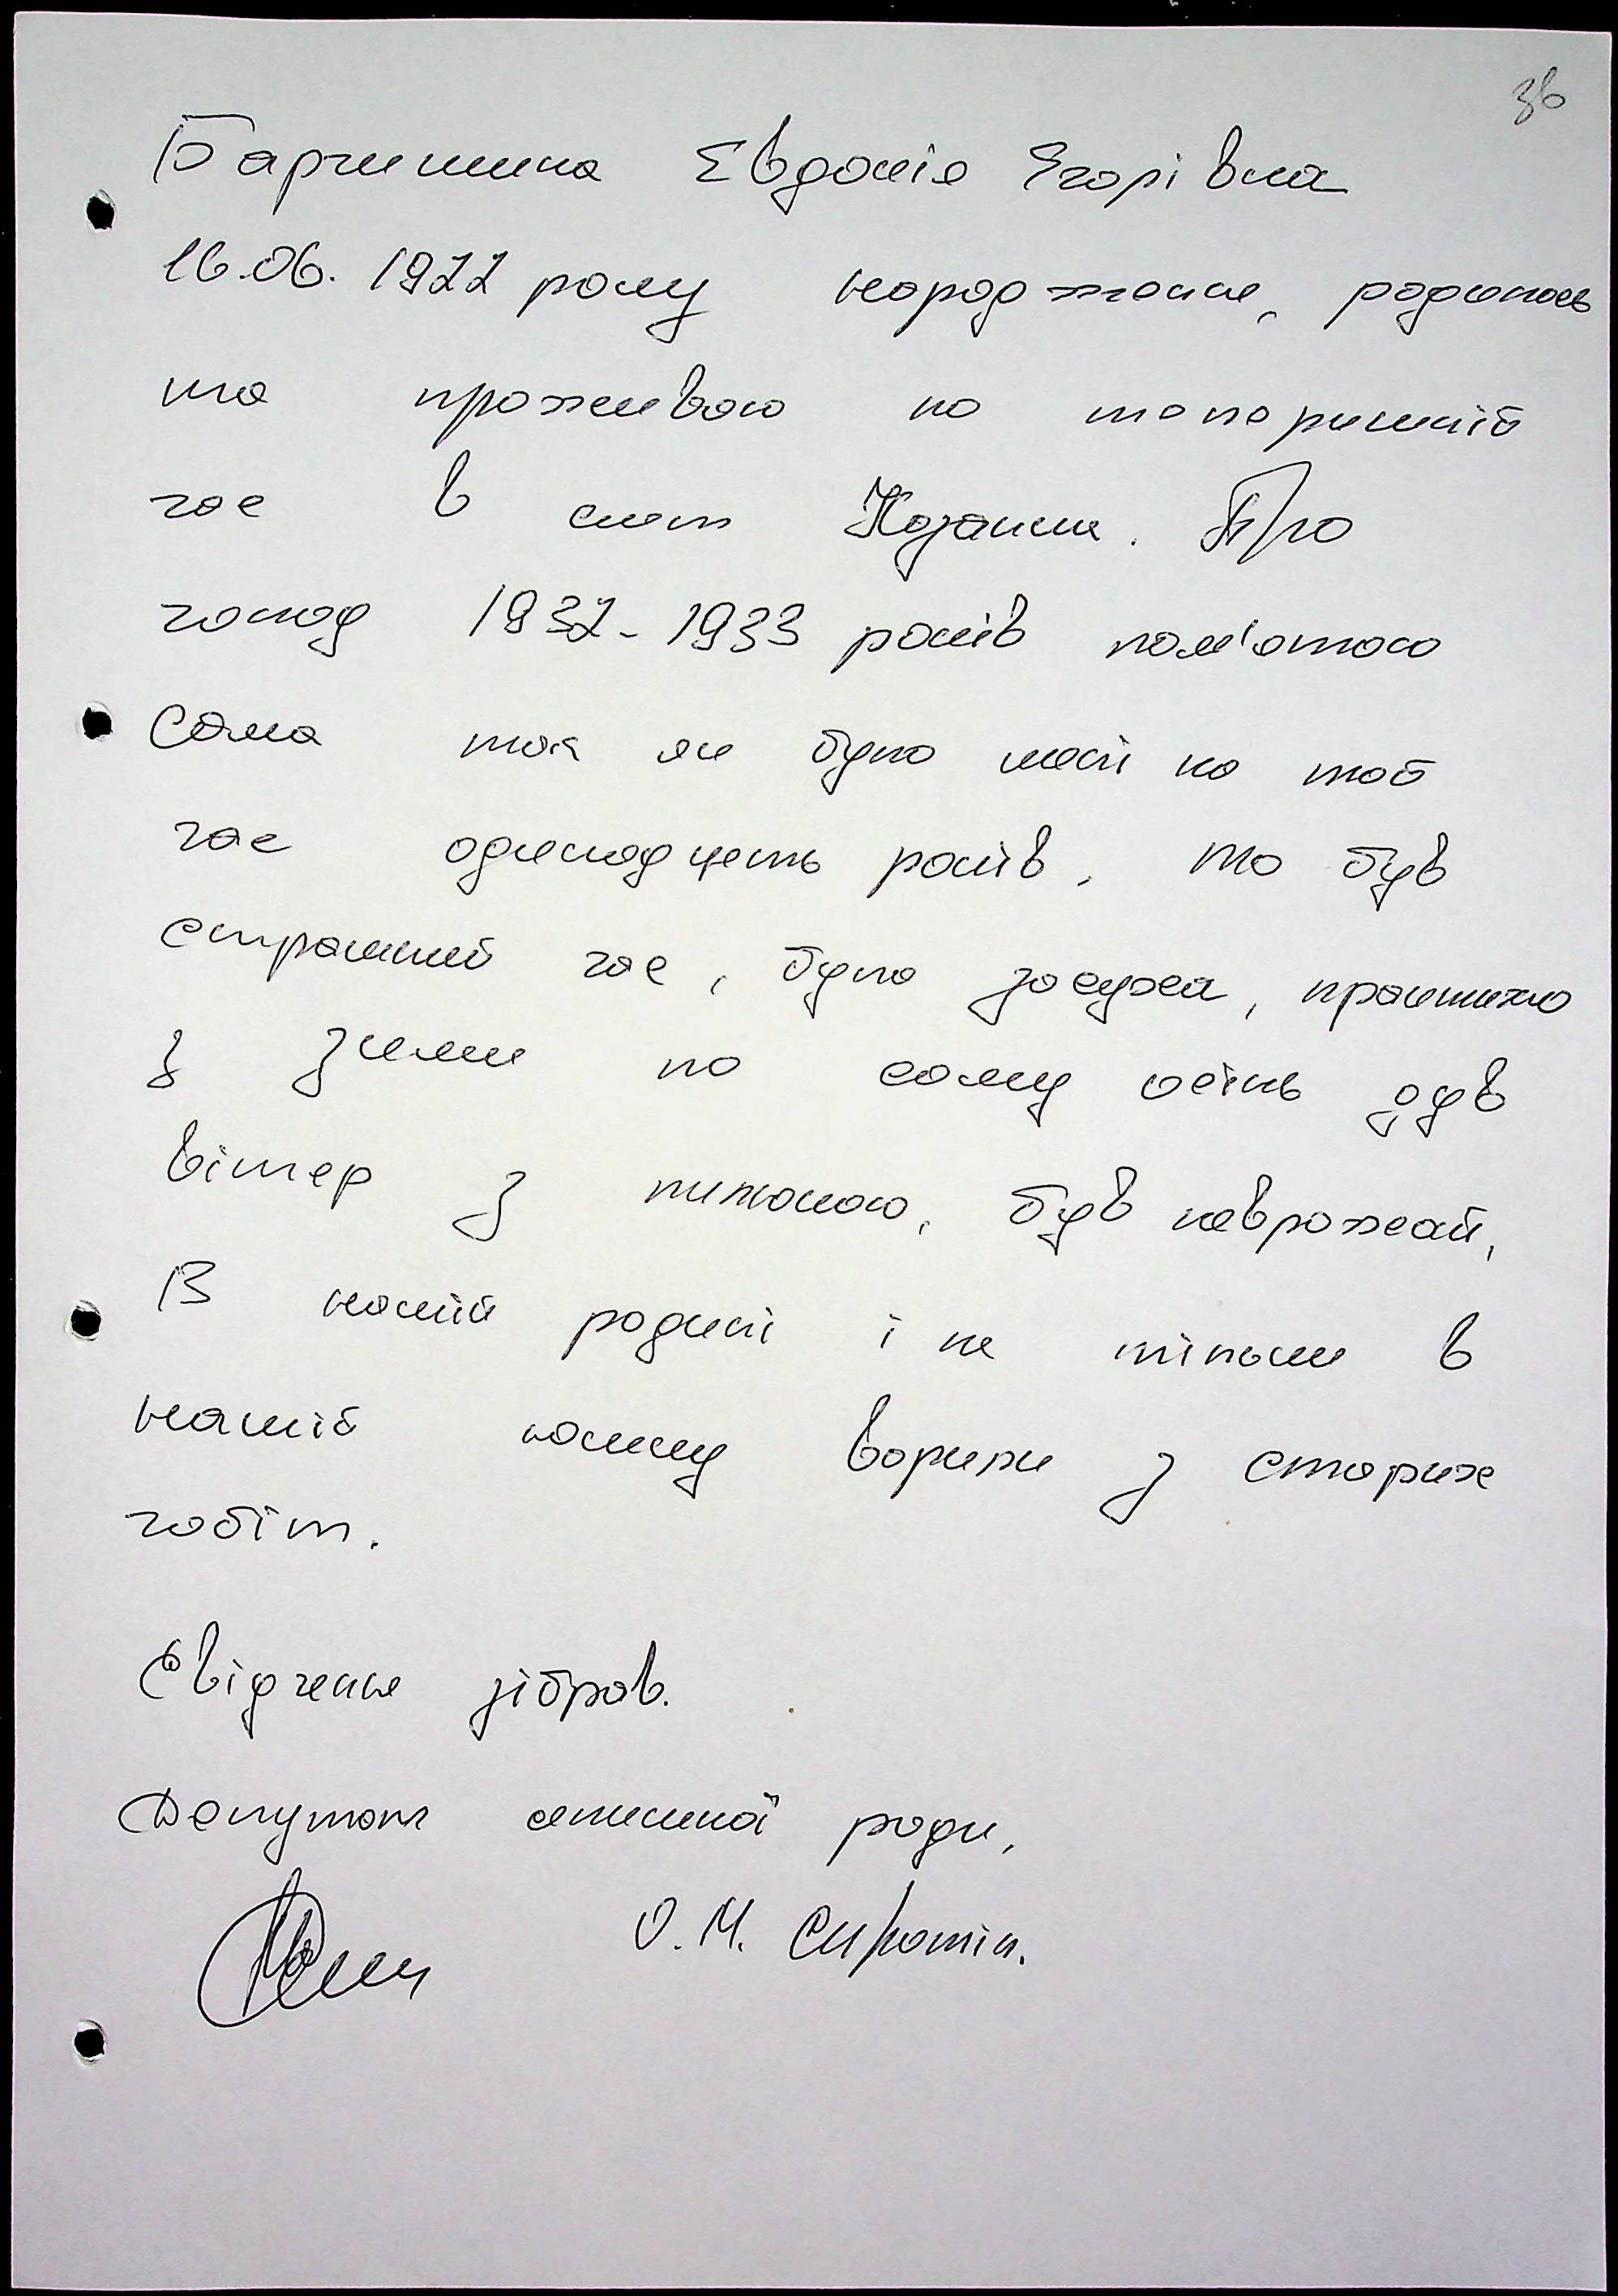 36
Євдокія Єгорівна
16.06.1922 року народження, родилась
та проживаю по теперишній
час в смт Козача. Про
голод 1932-1933 років пам'ятаю
Сама так як було мені на той
час одинадцять років, то був
страшний час, була засуха, практично
з зими по саму осінь дув
вітер з пилюкою, був неврожай,
В нашій родині і не тільки в
нашій юшку варили з старих
чобіт.
Свідчення зібрав.
Депутат селищної ради,
О.М. Сиротін.